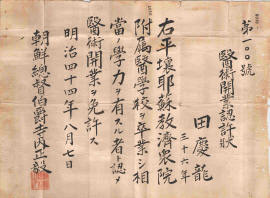 第一〇〇號
醫術開業認許狀
田慶龍
三十六年
右平壤耶蘇敎濟衆院
附属醫學校ヲ卒業シ相
當ノ學力ヲ有スル者ト認メ
醫術開業ヲ免許ス
明治四十四年八月七日
朝鮮總督伯爵寺内正毅